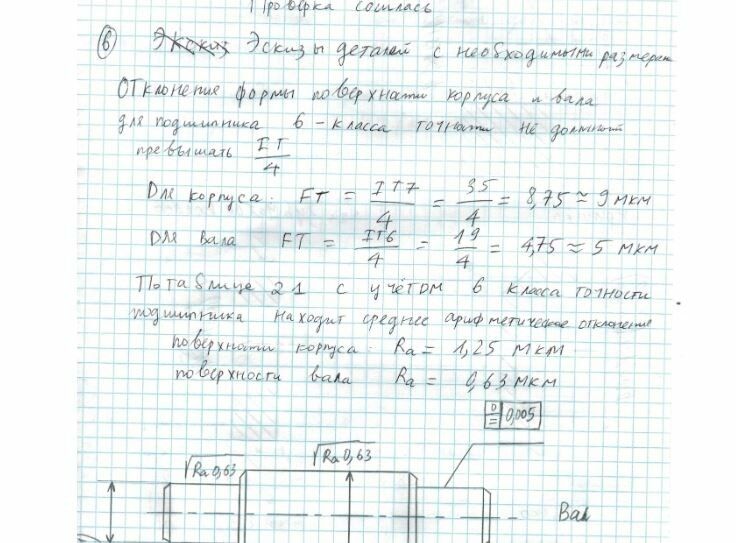 Проверка сошлась
6 Эскиз Эскизы деталей с необходимыми размерам
Отклонение формы поверхности корпуса и вала
для подшипника 6 - класса точности не должны
превышать IT/4
Для корпуса: FT = IT7/4 = 35/4 = 8,75 ≈ 9 мкм
Для вала FT = IT6/4 = 19/4 = 4,75 ≈ 5 мкм
По таблице 21 с учётом 6 класса точности
подшипника находит среднее арифметическое отклонение
поверхности корпуса: Ra = 1,25 мкм
поверхности вала Ra = 0,63 мкм
0,005
√Ra 0,63
√Ra 0,63
Вал